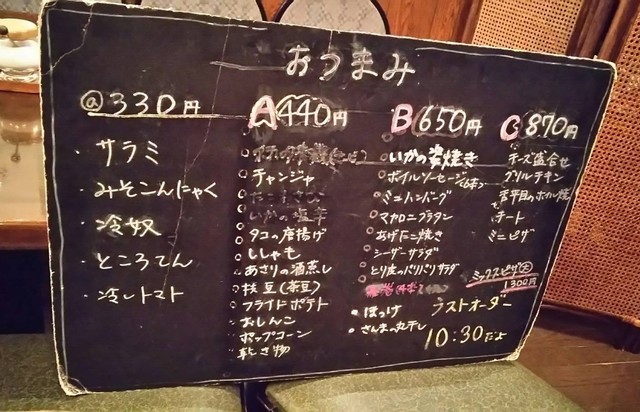 おつまみ
@330円
・サラミ
・みそこんにゃく
・冷奴
・ところてん
・冷しトマト
A440円
チャンジャ
いかの塩辛
タコの唐揚げ
ししゃも
あさりの酒蒸し
枝豆(茶豆)
フライドポテト
おしんこ
ポップコーン
乾き物
B650円
いかの姿焼き
ボイルソーセージ
ミニハンバーグ
マカロニグラタン
あげたこ焼き
シーザーサラダ
とり皮のパリパリサラダ
ほっけ
さんまの丸干し
C870円
チーズ盛合せ
グリルチキン
チート
ミニピザ
ミックスピザ大
1300円
ラストオーダー
10:30だよ